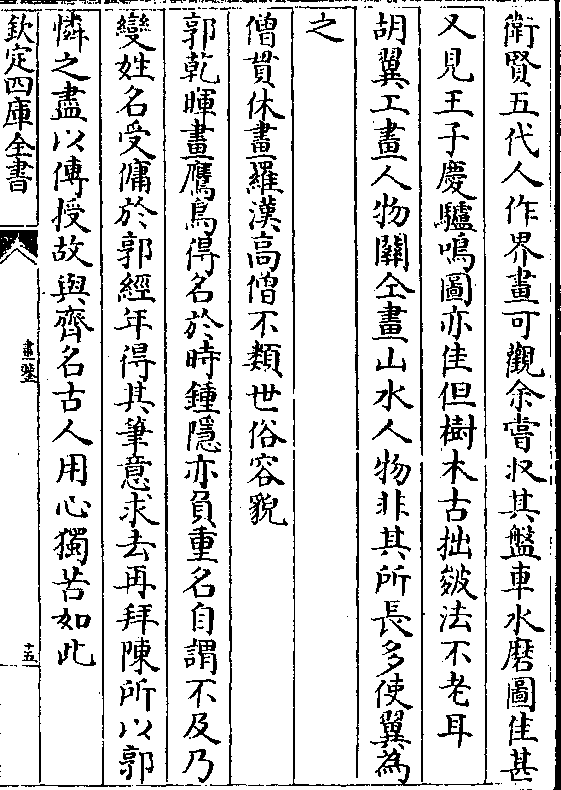 衛賢五代人作界畫可觀余嘗収其盤車水磨圖佳甚
又見王子慶驢鳴圖亦佳但樹木古拙皴法不老耳
胡翼工畫人物闗仝畫山水人物非其所長多使翼為
之
僧貫休畫羅漢高僧不類世俗容貌
郭乾暉畫鷹鳥得名於時鍾隱亦負重名自謂不及乃
變姓名受傭於郭經年得其筆意求去再拜陳所以郭
憐之盡以傳授故與齊名古人用心獨苦如此
欽定四庫全書
畫鑒
十五